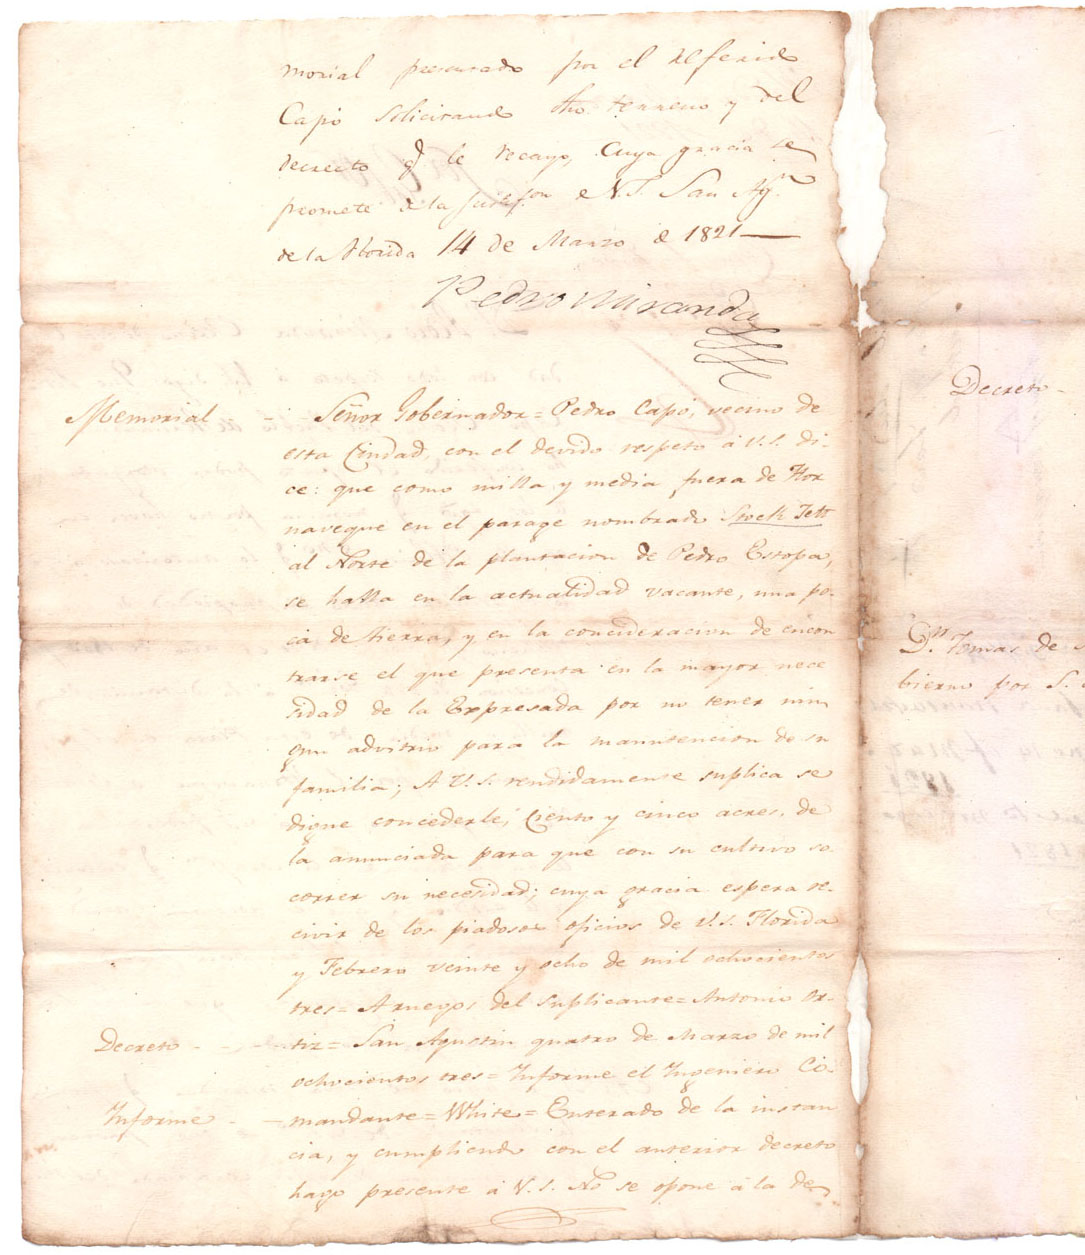 morial presentado por el referido
Capó solicitando dho. terreno y del
decreto qe. le recayó, cuya gracia se
promete de la
San Agn.
de la Florida 14 de Marzo de 1821
Pedro Miranda
Memorial
Señor Gobernador = Pedro Capó, vecino de
esta Ciudad, con el devido respeto á V.S. di-
ce: que como milla y media fuera de Hor
naveque en el parage nombrado
al Norte de la plantacion de Pedro Estopa,
se halla en la actualidad vacante, una po-
ca de tierra, y en la concideracion de encon
trarse el que presenta en la mayor nece
sidad de la Expresada por no tener nin
gun advitrio para la manutencion de su
familia; A V.S. rendidamente suplica se
digne concederle, Ciento y cinco acres, de
la anunciada para que con su cultivo so-
correr su necesidad; cuya gracia espera re-
civir de los piadosos oficios de V.S. Florida
y Febrero veinte y ocho de mil ochocientos
tres = A ruegos del suplicante = Antonio Or-
Decreto - - tiz = San Agustin quatro de Marzo de mil
ochocientos tres = Informe el Ingeniero Co-
Informe - - mandante = White = Enterado de la instan
cia, y cumpliendo con el anterior decreto
hago presente á V.S. No se opone á la de
Decreto -
Dn. Tomas de
bierno por S.